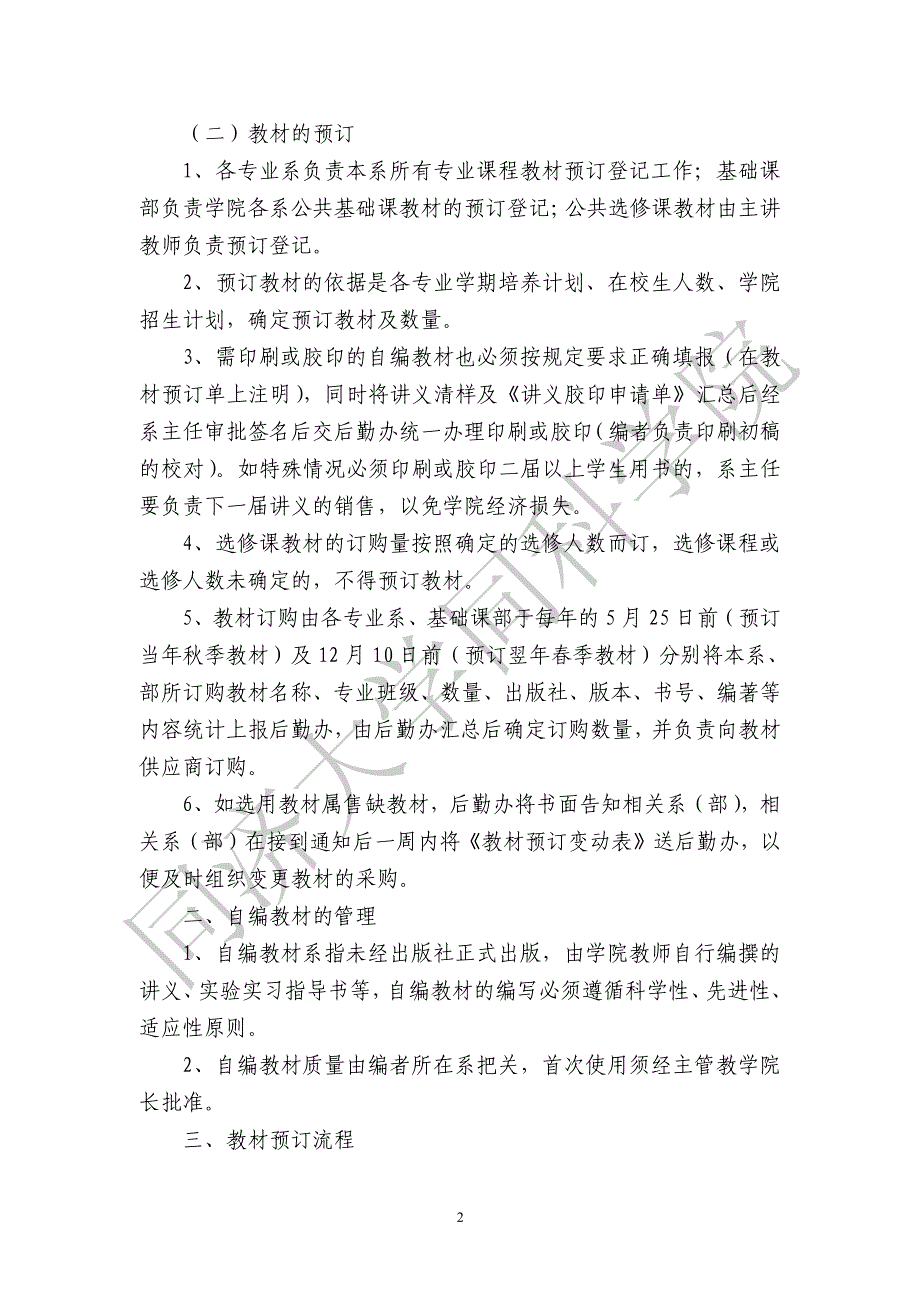 （二）教材的预订
1、各专业系负责本系所有专业课程教材预订登记工作；基础课
部负责学院各系公共基础课教材的预订登记；公共选修课教材由主讲
教师负责预订登记。
2、预订教材的依据是各专业学期培养计划、在校生人数、学院
招生计划，确定预订教材及数量。
3、需印刷或胶印的自编教材也必须按规定要求正确填报（在教
材预订单上注明），同时将讲义清样及《讲义胶印申请单》汇总后经
系主任审批签名后交后勤办统一办理印刷或胶印（编者负责印刷初稿
的校对）。如特殊情况必须印刷或胶印二届以上学生用书的，系主任
要负责下一届讲义的销售，以免学院经济损失。
4、选修课教材的订购量按照确定的选修人数而订，选修课程或
选修人数未确定的，不得预订教材。
5、教材订购由各专业系、基础课部于每年的 5 月 25 日前（预订
当年秋季教材）及 12 月 10 日前（预订翌年春季教材）分别将本系、
部所订购教材名称、专业班级、数量、出版社、版本、书号、编著等
内容统计上报后勤办，由后勤办汇总后确定订购数量，并负责向教材
供应商订购。
6、如选用教材属售缺教材，后勤办将书面告知相关系（部），相
关系（部）在接到通知后一周内将《教材预订变动表》送后勤办，以
便及时组织变更教材的采购。
二、自编教材的管理
1、自编教材系指未经出版社正式出版，由学院教师自行编撰的
讲义、实验实习指导书等，自编教材的编写必须遵循科学性、先进性、
适应性原则。
2、自编教材质量由编者所在系把关，首次使用须经主管教学院
长批准。
三、教材预订流程
2
同济大学同科学院